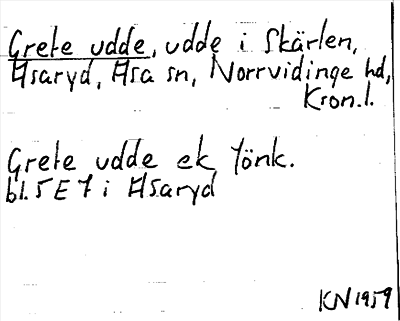 Grete udde, udde i Skärlen,
Asaryd, Asa sn, Norrvidinge hd,
Kron.l.
Grete udde ek Jönk.
bl. 5 E 7 i Asaryd
KN 1959